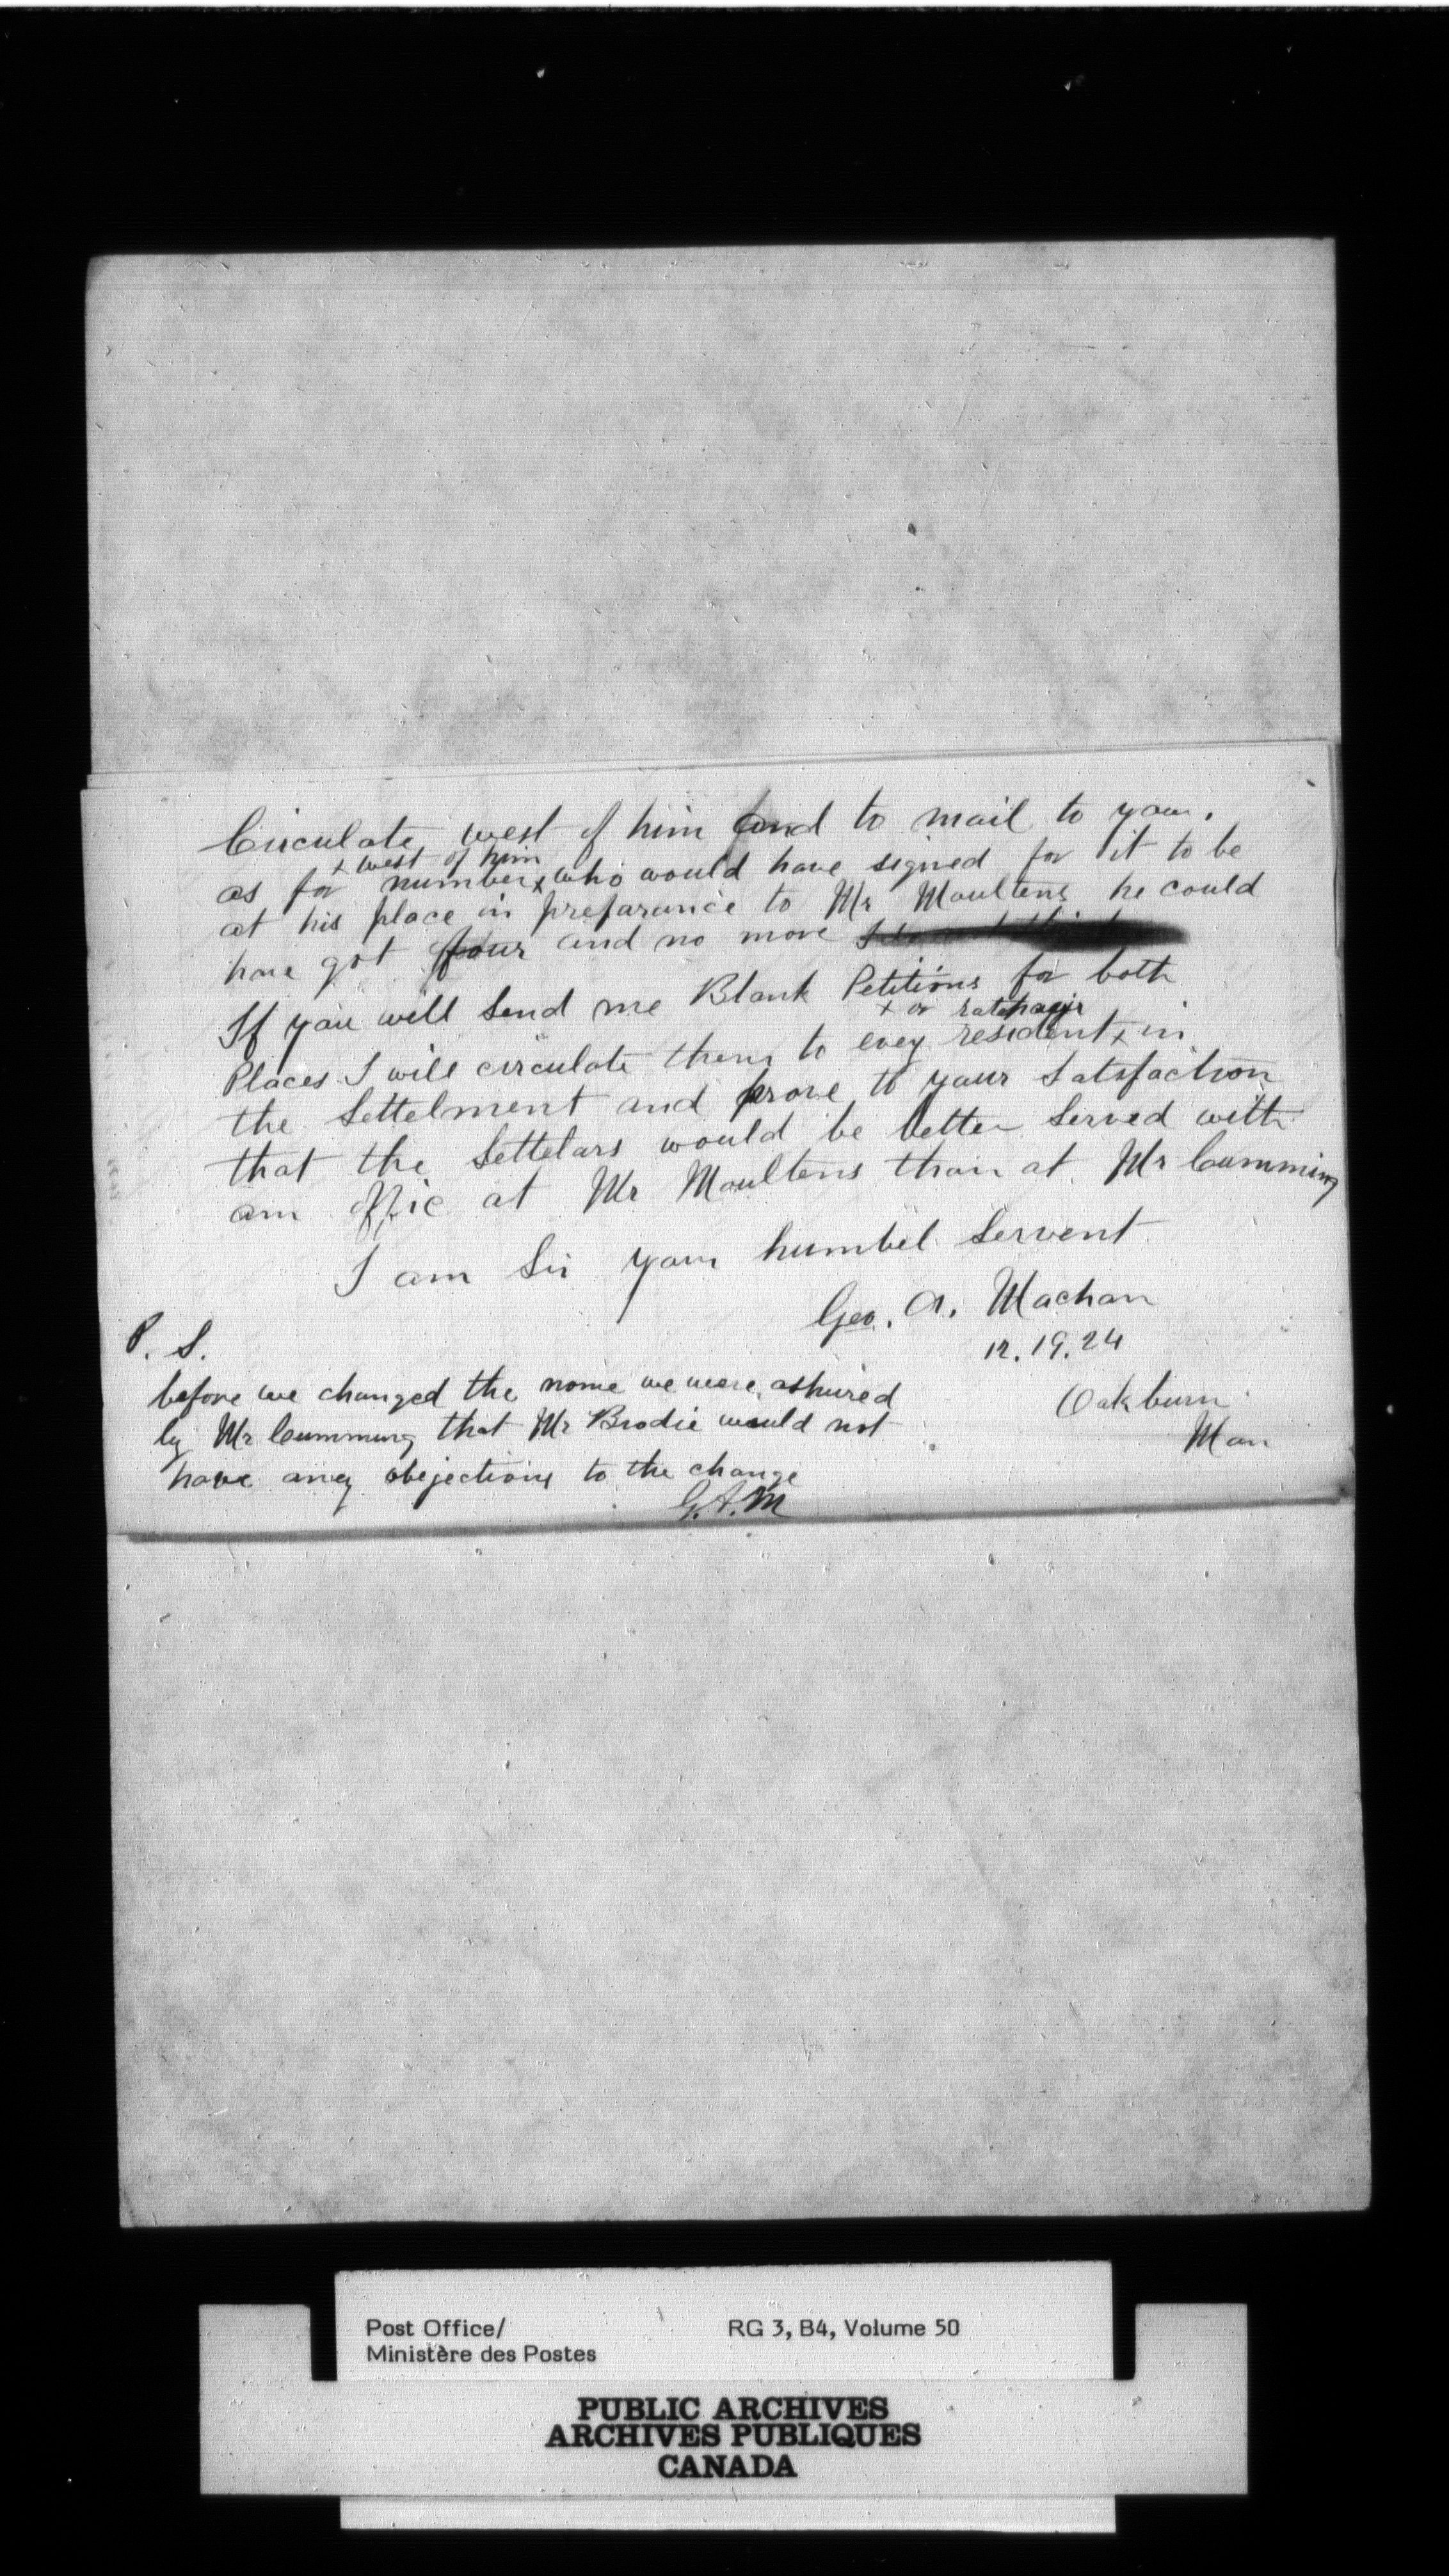 Circulate west of him and to mail to you.
x west of him
as for numberx who would have signed for it to be
at his place in prefarance to Mr Moultens he could
have got four and no more
If you will Send me Blank Petitions for both
x or ratepayir
Places I will circulate them to evey residentx in
the Settelment and prove to your Satsfaction
that the Settelars would be better Served with
am offic at Mr Moultens than at Mr Cumming
I am Sir your humbel Servent
Geo. A. Machan
12.19.24
Oakburn
Man
P. S.
before we changed the nome we were ashured
by Mr Cumming that Mr Brodie would not
have any obejections to the change
G.A.M
Post Office/ RG 3, B4, Volume 50
Ministère des Postes
PUBLIC ARCHIVES
ARCHIVES PUBLIQUES
CANADA